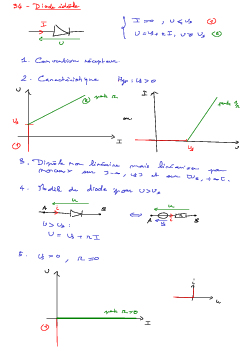 36 - Diode idéale
I
u
I = 0, u ≤ u₀ ①
U = U₀ + r I, u ≥ u₀ ②
1. Convention récepteur.
2. Caractéristique Hyp: U₀ > 0
U
② pente r
U₀
①
I
ou
I
pente 1/r
U₀
u
3. Dipôle non linéaire mais linéaire par
morceaux sur ]-∞, U₀] et sur [U₀, +∞[.
4. Modèle de diode pour U > U₀
u
A
i
B
⇔
u
A
i
B
U > U₀:
U = U₀ + r I
5. U₀ = 0, r = 0
U
①
pente r = 0
I
i
u